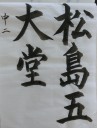 松島五
大堂
中二